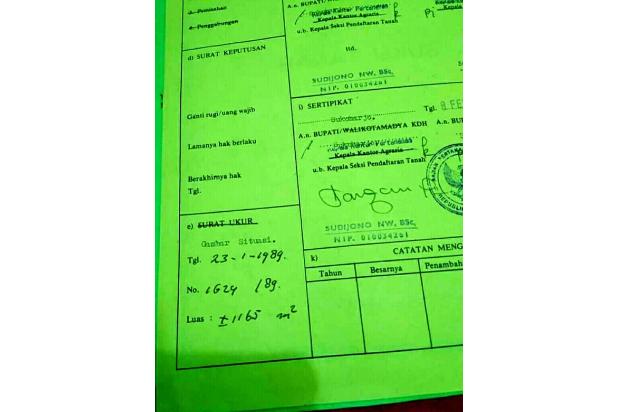 c. Pemisahan
d. Penggabungan
d) SURAT KEPUTUSAN
Ganti rugi/uang wajib
Lamanya hak berlaku
Berakhirnya hak
Tgl.
e) SURAT UKUR
Gambar Situasi.
Tgl. 23-1-1989.
No. 1624 /89.
Luas : ± 1165 m²
A.n. BUPATI
Kepala Kantor Pertanahan
Kepala Kantor Agraria
u.b. Kepala Seksi Pendaftaran Tanah
ttd.
SUDIJONO NW, BSc,
NIP. 010034261
i) SERTIPIKAT
Sukoharjo, Tgl. 8 FE
A.n. BUPATI/WALIKOTAMADYA KDH A.n. BUP
Kepala Kantor Pertanahan
Kepala Kantor Agraria
u.b. Kepala Seksi Pendaftaran Tanah
SUDIJONO NW, BSc,
NIP. 010034261
k) CATATAN MENG
Tahun Besarnya Penambah